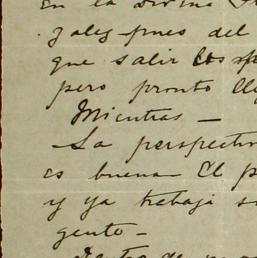 en la divina
y alez pues del
que salir los
pero pronto
Mientras —
La perspectiv
es buena El p
y ya trabajá s
gente —